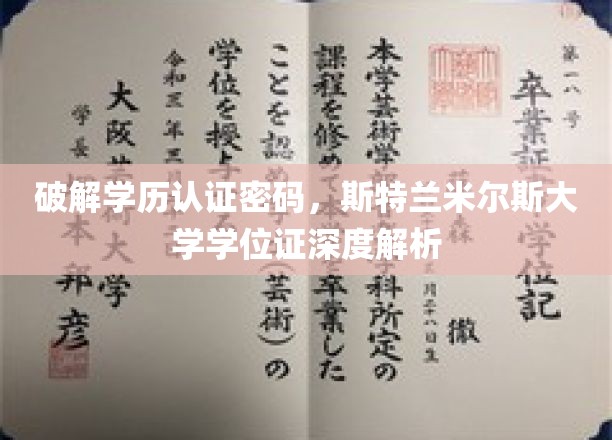 破解学历认证密码，斯特兰米尔斯大
学学位证深度解析
第一八号
卒業証 学位記
森 徹
月二十八日生
本学芸術学 科所定の
課程を修めて 卒業した
ことを認め (芸術)の
学位を授与
令和三年三月
大阪芸術大学
学長 本邦彦